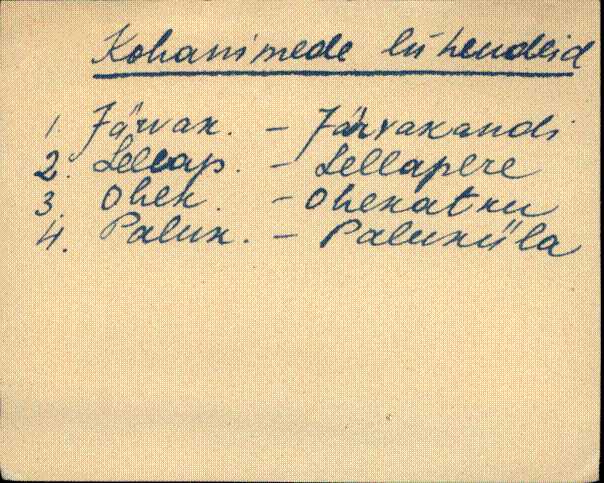 Kohanimede lühendeid
1. Järvak. - Järvakandi
2. Lellap. - Lellapere
3. Ohek. - Ohekatku
4. Paluk. - Paluküla